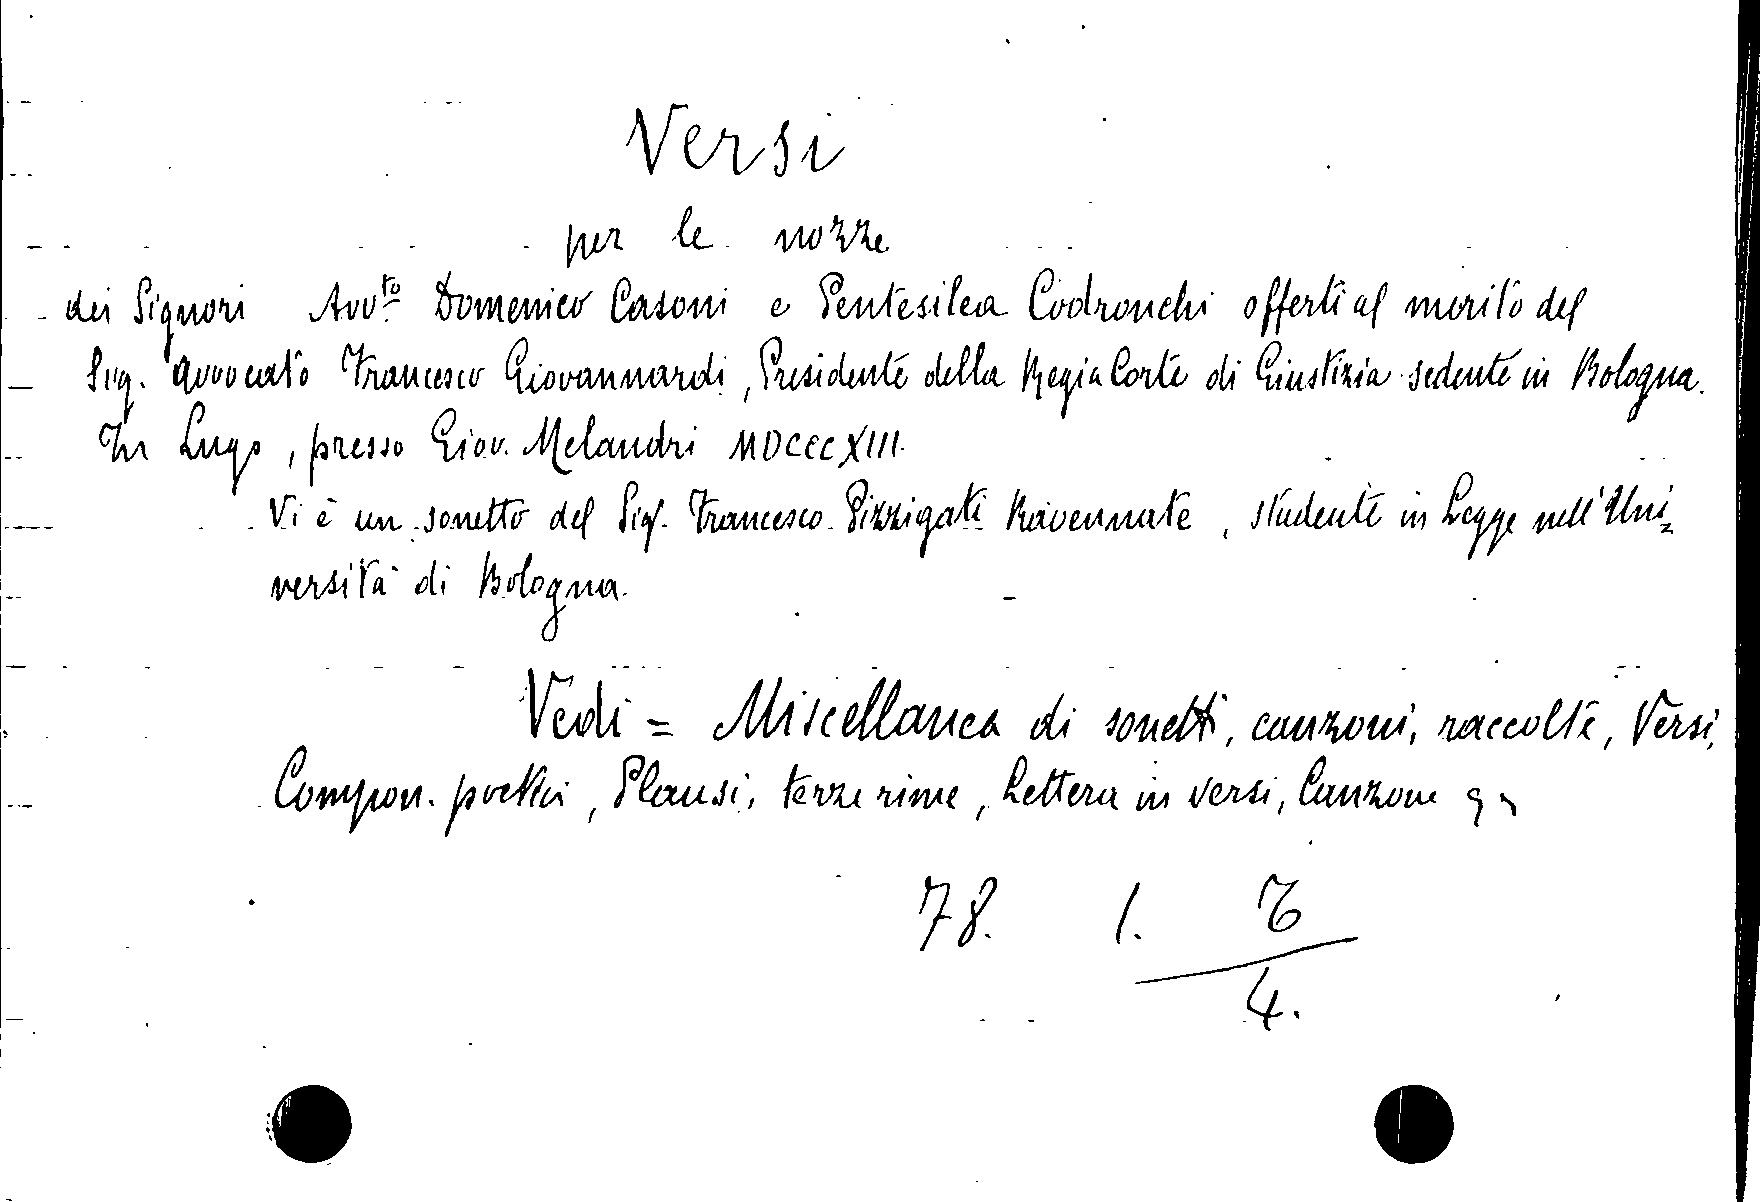 Versi
per le nozze
dei Signori Avv.to Domenico Casoni e Pentesilea Codronchi offerti al merito del
Sig. avvocato Francesco Giovannardi, Presidente della Regia Corte di Giustizia sedente in Bologna.
In Lugo, presso Giov. Melandri MDCCCXIII.
Vi è un sonetto del Sig. Francesco Pizzigati Ravennate, studente in Legge nell'Uni=
versità di Bologna.
Vedi = Miscellanea di sonetti, canzoni, raccolte, Versi,
Compon. poetici, Plausi, terze rime, Lettera in versi, Canzone
78. 1.
4.